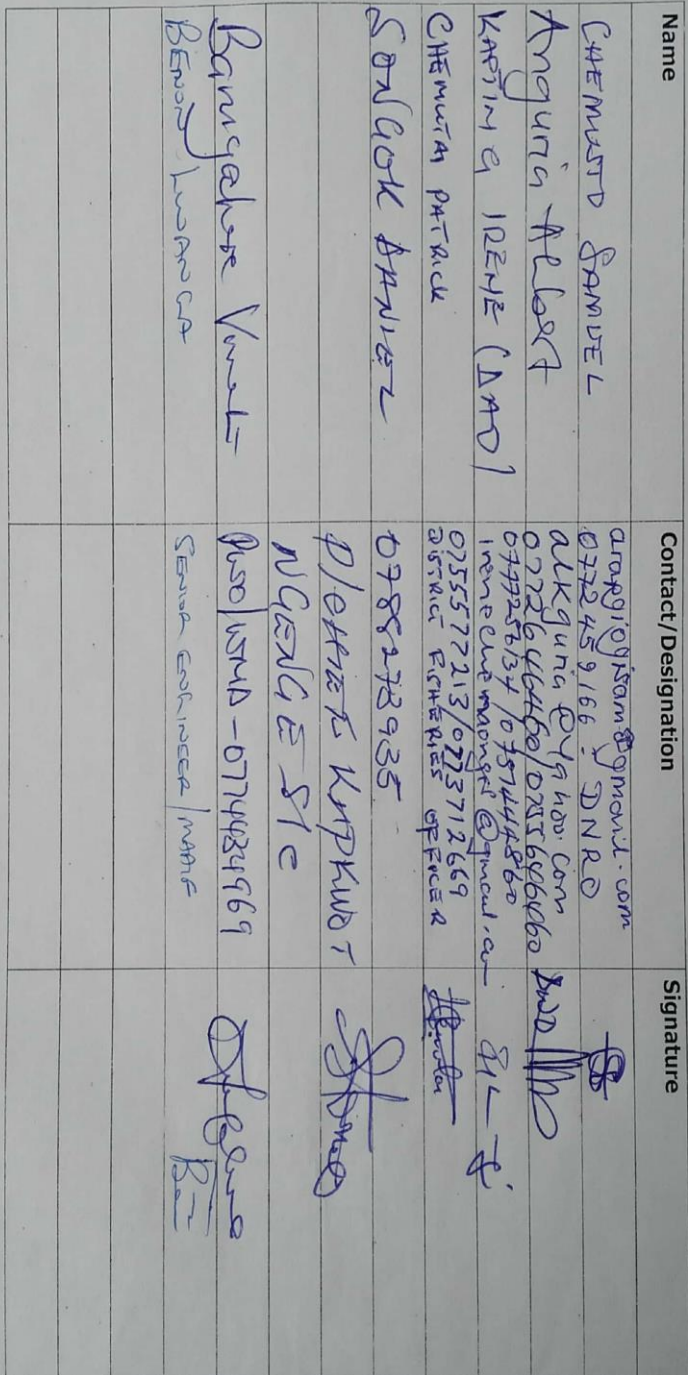 Name Contact/Designation Signature
CHEMUSTO SAMUEL
arapgiogisam@gmail.com
0772459166 - DNRO
Anguria Albert
alkguria@yahoo.com
0772646460/0755646460 DWO
KAPTING IRENE (DAO)
0777256137 / 0757444860
irenechemonges@gmail.com
CHEMUTAI PATRICK
0755577213/0773712669
DISTRICT FISHERIES OFFICER
SONGOK DANIEL
0788273935
P/CHIEF KAPKWOT
NGENGE S/C
0774434969
BENON LWANGA
SENIOR ENGINEER/MAAIF